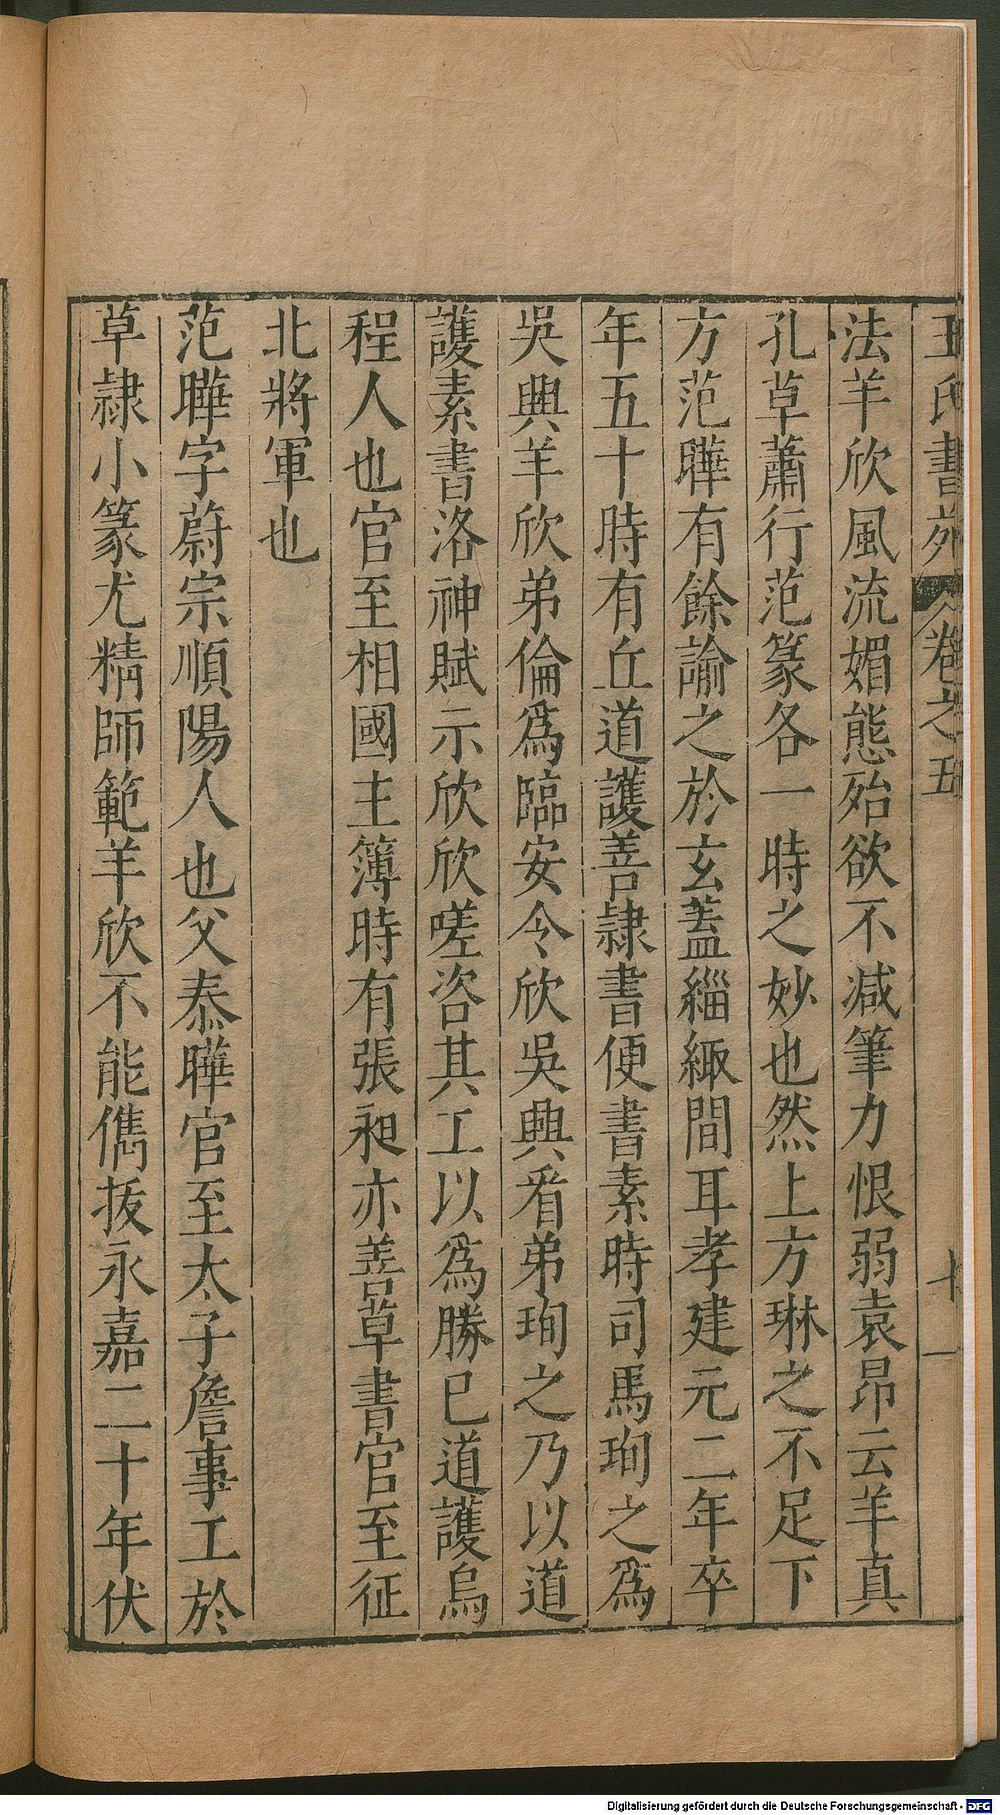 王氏書苑 卷之五 十一
法羊欣風流媚態殆欲不減筆力恨弱袁昂云羊真
孔草蕭行范篆各一時之妙也然上方琳之不足下
方范曄有餘諭之於玄蓋緇緅間耳孝建元二年卒
年五十時有丘道護善隷書便書素時司馬珣之爲
吳興羊欣弟倫爲臨安令欣吳興看弟珣之乃以道
護素書洛神賦示欣欣嗟咨其工以爲勝已道護烏
程人也官至相國主簿時有張昶亦善草書官至征
北將軍也
范曄字蔚宗順陽人也父泰曄官至太子詹事工於
草隷小篆尤精師範羊欣不能儁拔永嘉二十年伏
Digitalisierung gefördert durch die Deutsche Forschungsgemeinschaft - DFG